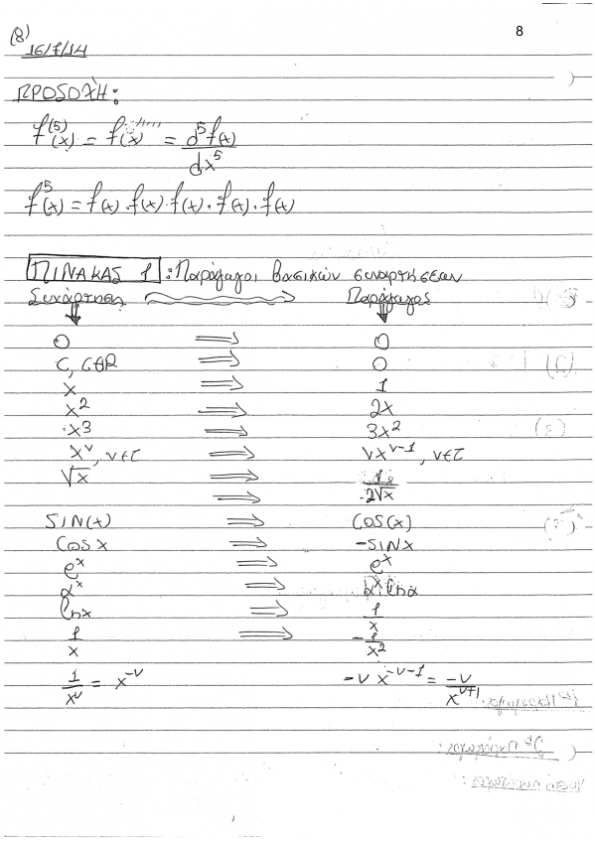 (8)
8
16/7/14
ΠΡΟΣΟΧΗ:
f⁽⁵⁾(x) = f'''''(x) = d⁵f(x)/dx⁵
f⁵(x) = f(x).f(x).f(x).f(x).f(x)
ΠΙΝΑΚΑΣ 1: Παράγωγοι βασικών συναρτήσεων
Συνάρτηση → Παράγωγος
0 ⇒ 0
C, C∈R ⇒ 0
x ⇒ 1
x² ⇒ 2x
x³ ⇒ 3x²
xᵛ, ν∈Z ⇒ νxᵛ⁻¹, ν∈Z
√x ⇒ 1/2√x
⇒
SIN(x) ⇒ COS(x)
COSx ⇒ -SINx
eˣ ⇒ eˣ
αˣ ⇒ αˣ lnα
lnx ⇒ 1/x
1/x ⇒ -1/x²
1/xᵛ = x⁻ᵛ -νx⁻ᵛ⁻¹ = -ν/xᵛ⁺¹